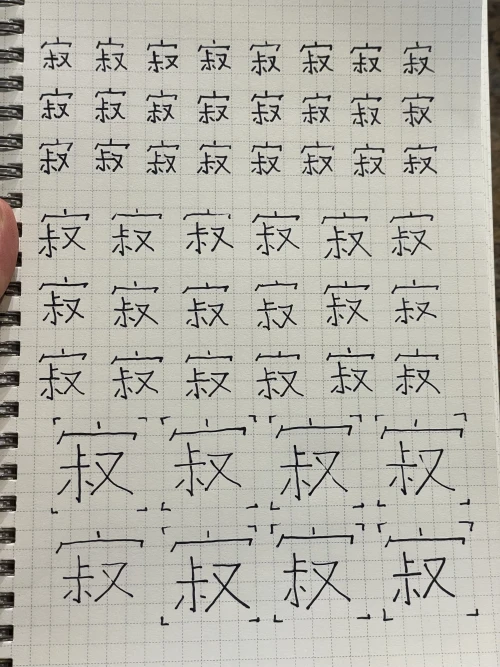 寂寂寂寂寂寂寂寂
寂寂寂寂寂寂寂寂
寂寂寂寂寂寂寂寂
寂寂寂寂寂寂
寂寂寂寂寂寂
寂寂寂寂寂寂
寂寂寂寂
寂寂寂寂